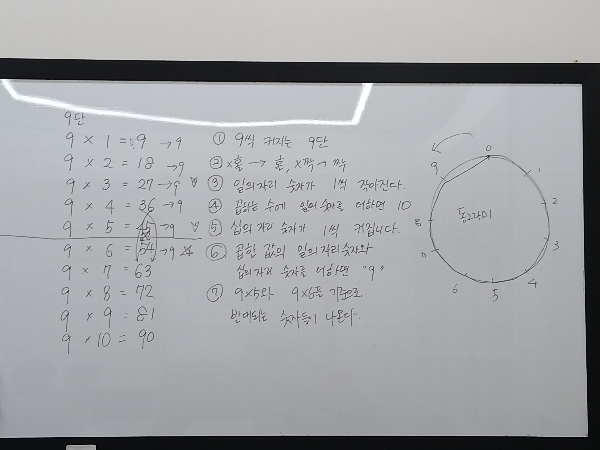 9단
9 × 1 = 9 → 9
9 × 2 = 18 → 9
9 × 3 = 27 → 9
9 × 4 = 36 → 9
9 × 5 = 45 → 9
9 × 6 = 54 → 9
9 × 7 = 63
9 × 8 = 72
9 × 9 = 81
9 × 10 = 90
① 9씩 커지는 9단
② ×홀 → 홀, ×짝 → 짝
③ 일의자리 숫자가 1씩 작아진다.
④ 곱하는 수에 일의숫자를 더하면 10
⑤ 십의 자리 숫자가 1씩 커집니다.
⑥ 곱한 값의 일의자리숫자와
십의자리 숫자를 더하면 "9"
⑦ 9×5와 9×6을 기준으로
반대되는 숫자들이 나온다.
0
1
2
3
4
5
6
7
8
9
동그라미